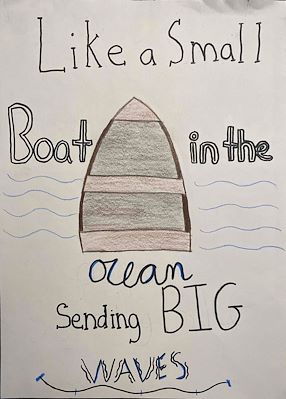 Like a Small
Boat in the
ocean
Sending BIG
WAVES